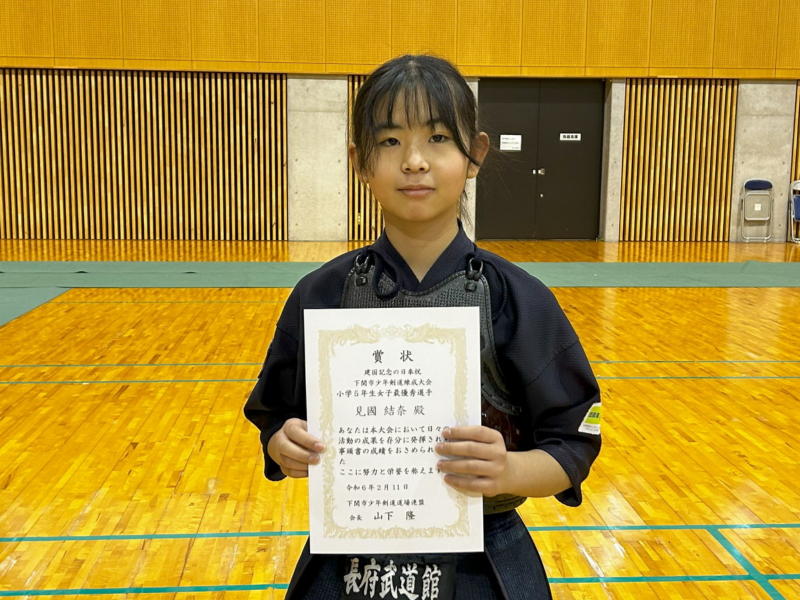 賞状
建国記念の日奉祝
下関市少年剣道錬成大会
小学5年生女子最優秀選手
見國 結奈 殿
あなたは本大会において日々の
活動の成果を存分に発揮され
事頭書の成績をおさめられ
た
ここに努力と栄誉を称えます
令和6年2月11日
下関市少年剣道道場連盟
会長 山下 隆
長府武道館